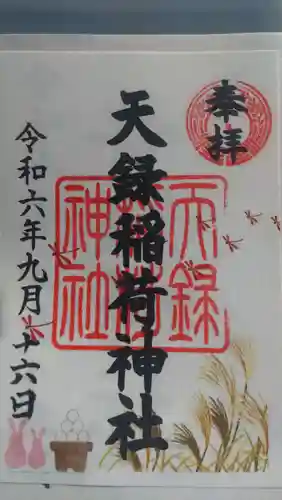 奉拝
天録稲荷神社
令和六年九月十六日
天録
稲荷
神社